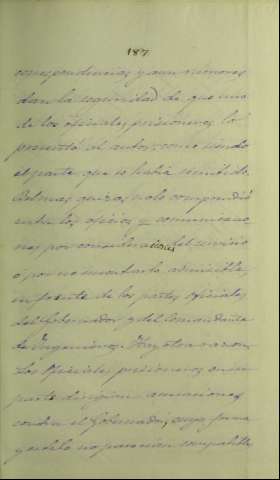 187
correspondencias y aun rumores
dan la seguridad de que uno
de los oficiales prisioneros lo
presentó al autor como siendo
el parte que se había remitido.
Belmas quizas no lo comprendió
entre los oficios y comunicacio
nes por consideraciones del servicio
ó por no encontrarlo admisible,
en frente de los partes oficiales
del Gobernador y del Comandante
de Ingenieros. Hay otra razon.
Los Oficiales prisioneros en su
parte dirigian acusaciones
contra el Gobernador; cuya forma
y modelo no parecian compatible